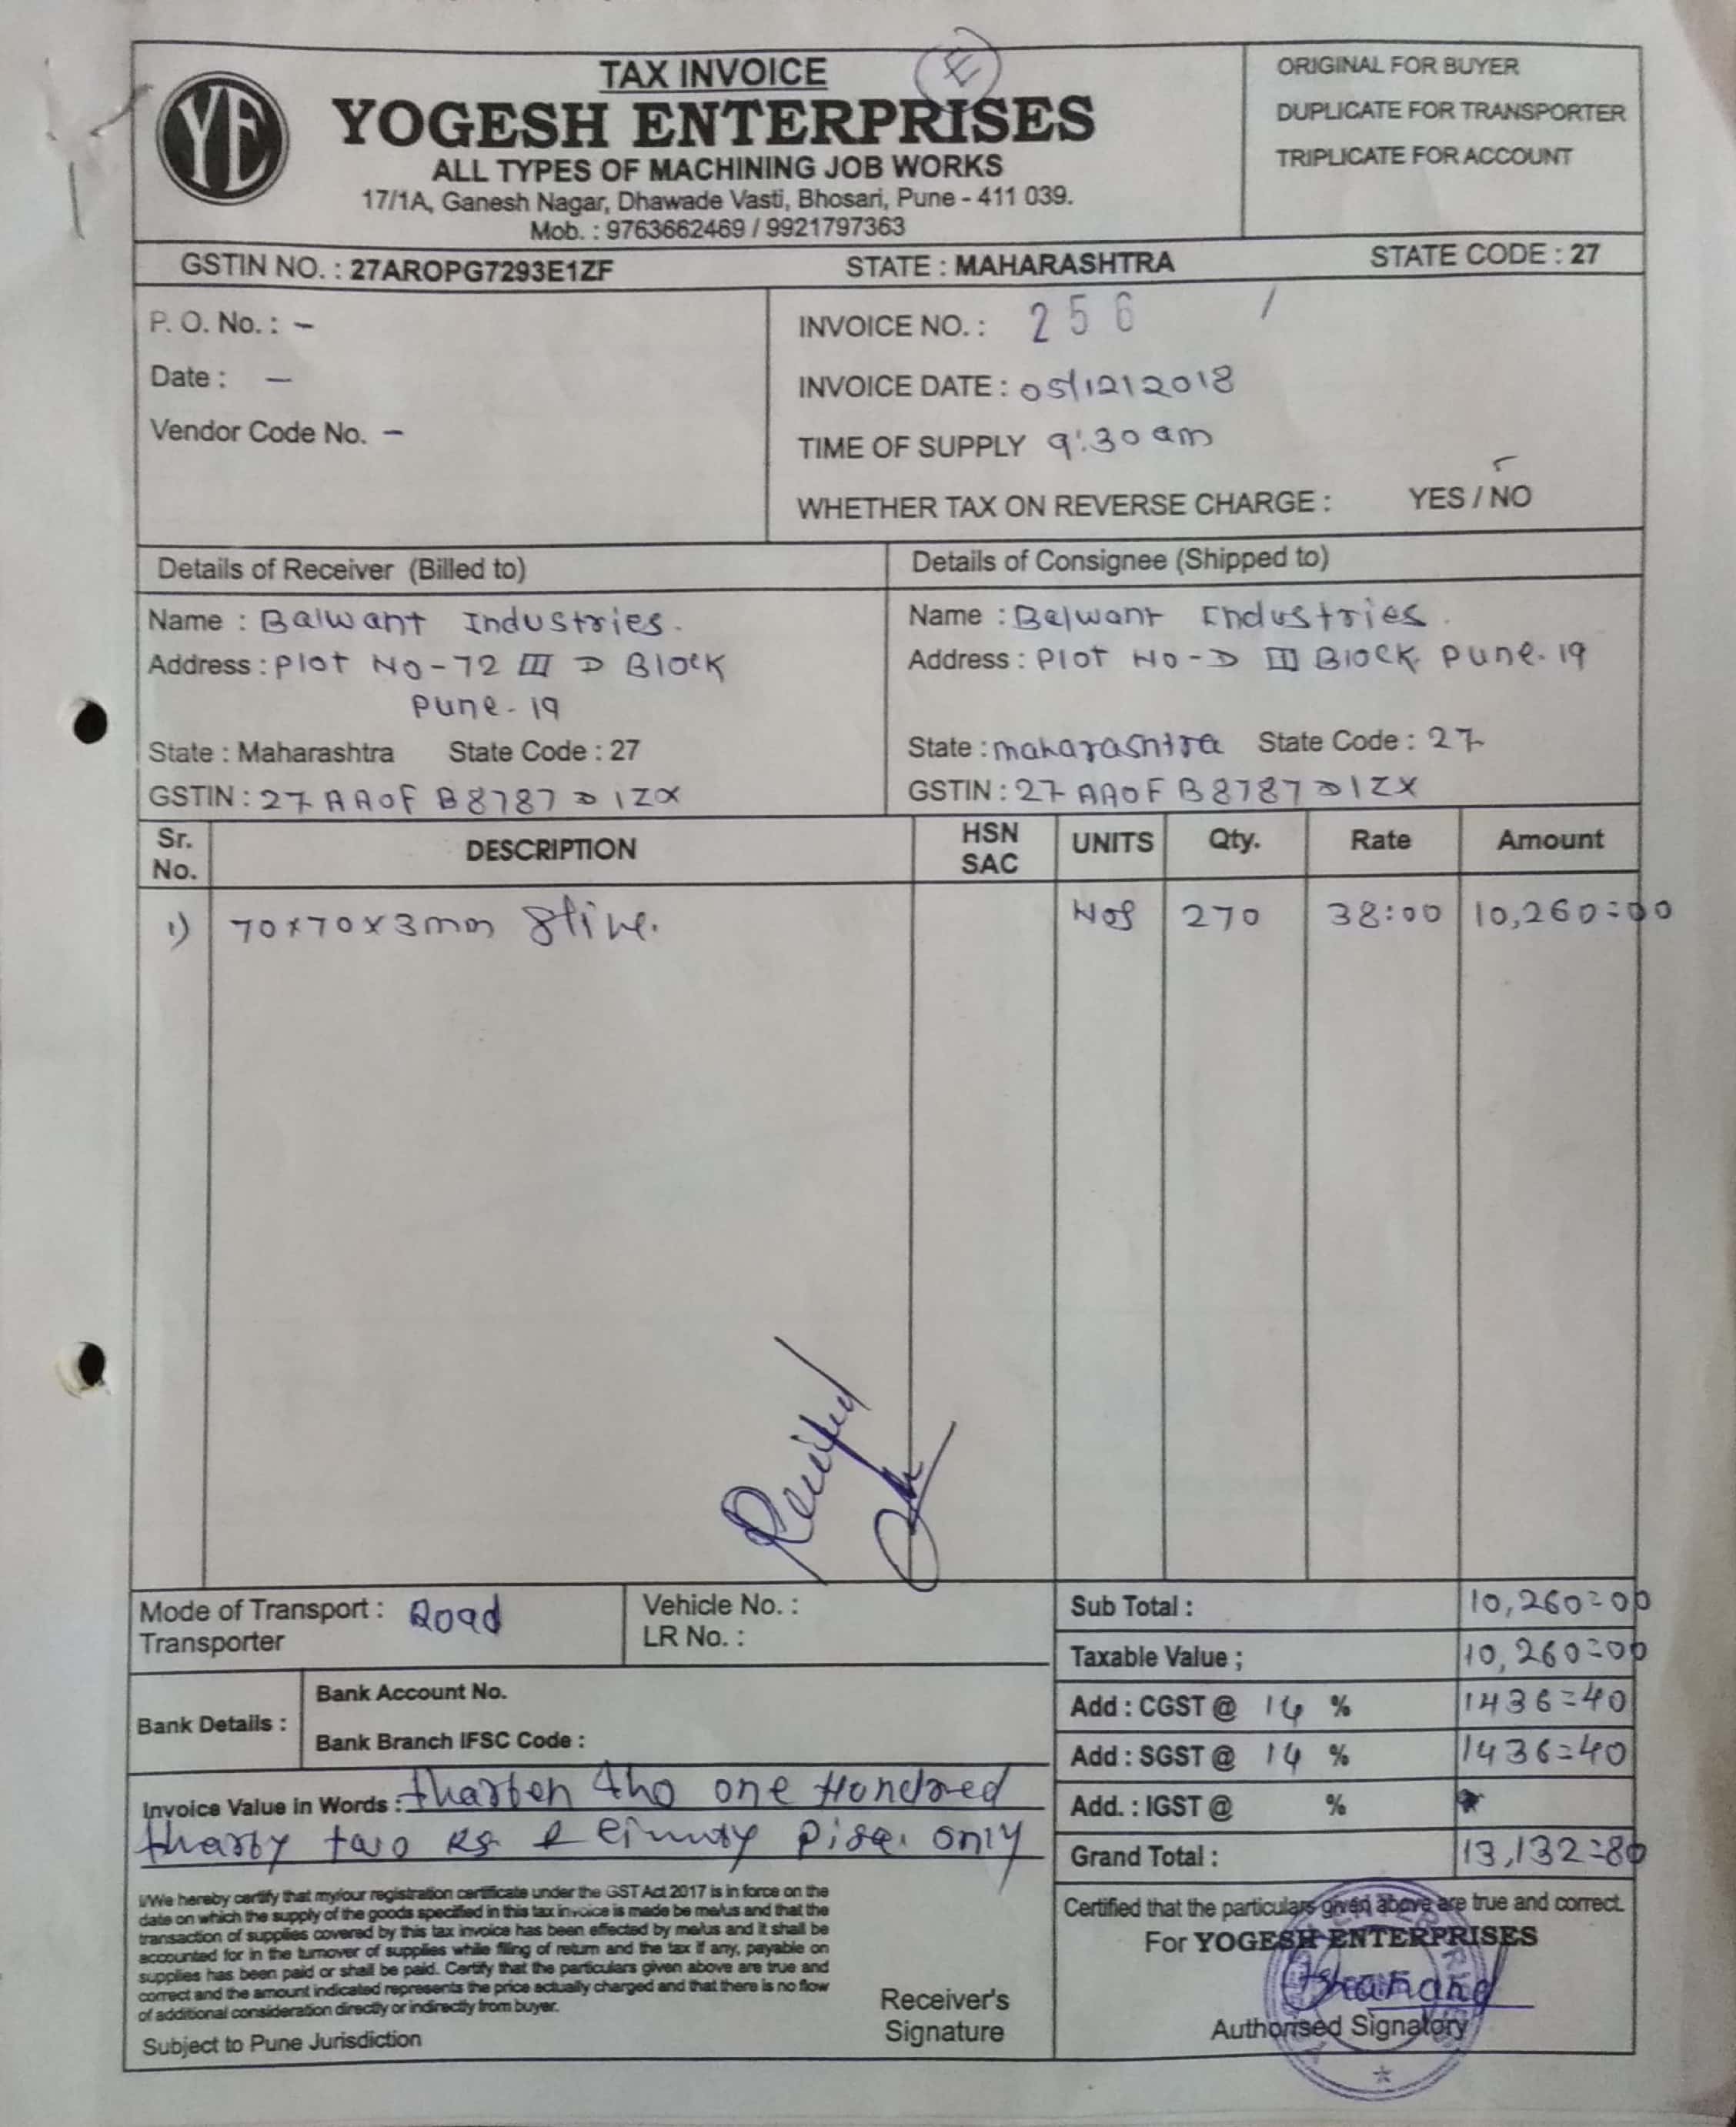 TAX INVOICE
E
YE
YOGESH ENTERPRISES
ALL TYPES OF MACHINING JOB WORKS
17/1A, Ganesh Nagar, Dhawade Vasti, Bhosari, Pune - 411 039.
Mob. : 9763662469 / 9921797363
ORIGINAL FOR BUYER
DUPLICATE FOR TRANSPORTER
TRIPLICATE FOR ACCOUNT
GSTIN NO. : 27AROPG7293E1ZF STATE : MAHARASHTRA STATE CODE : 27
P. O. No. : –
Date : –
Vendor Code No. –
INVOICE NO. : 256 /
INVOICE DATE : 05/12/2018
TIME OF SUPPLY 9:30 am
WHETHER TAX ON REVERSE CHARGE : YES / NO
Details of Receiver (Billed to)
Name : Balwant Industries.
Address : Plot No-72 III D Block
Pune-19
State : Maharashtra State Code : 27
GSTIN : 27AAOFB8787D1ZX
Details of Consignee (Shipped to)
Name : Balwant Industries.
Address : Plot No-D III Block. Pune-19
State : maharashtra State Code : 27
GSTIN : 27AAOFB8787D1ZX
Sr. No. DESCRIPTION HSN SAC UNITS Qty. Rate Amount
1) 70x70x3mm Nos 270 38:00 10,260=00
Received
Mode of Transport : Road
Transporter
Vehicle No. :
LR No. :
Bank Details :
Bank Account No.
Bank Branch IFSC Code :
Invoice Value in Words : tharten tho one Hondred
tharty two Rs & only
Sub Total : 10,260=00
Taxable Value ; 10,260=00
Add : CGST @ 14 % 1436=40
Add : SGST @ 14 % 1436=40
Add. : IGST @ %
Grand Total : 13,132=80
I/We hereby certify that my/our registration certificate under the GST Act 2017 is in force on the
date on which the supply of the goods specified in this tax invoice is made be me/us and that the
transaction of supplies covered by this tax invoice has been effected by me/us and it shall be
accounted for in the turnover of supplies while filing of return and the tax if any, payable on
supplies has been paid or shall be paid. Certify that the particulars given above are true and
correct and the amount indicated represents the price actually charged and that there is no flow
of additional consideration directly or indirectly from buyer.
Subject to Pune Jurisdiction
Receiver's
Signature
Certified that the particulars given above are true and correct.
For YOGESH ENTERPRISES
Authorised Signatory